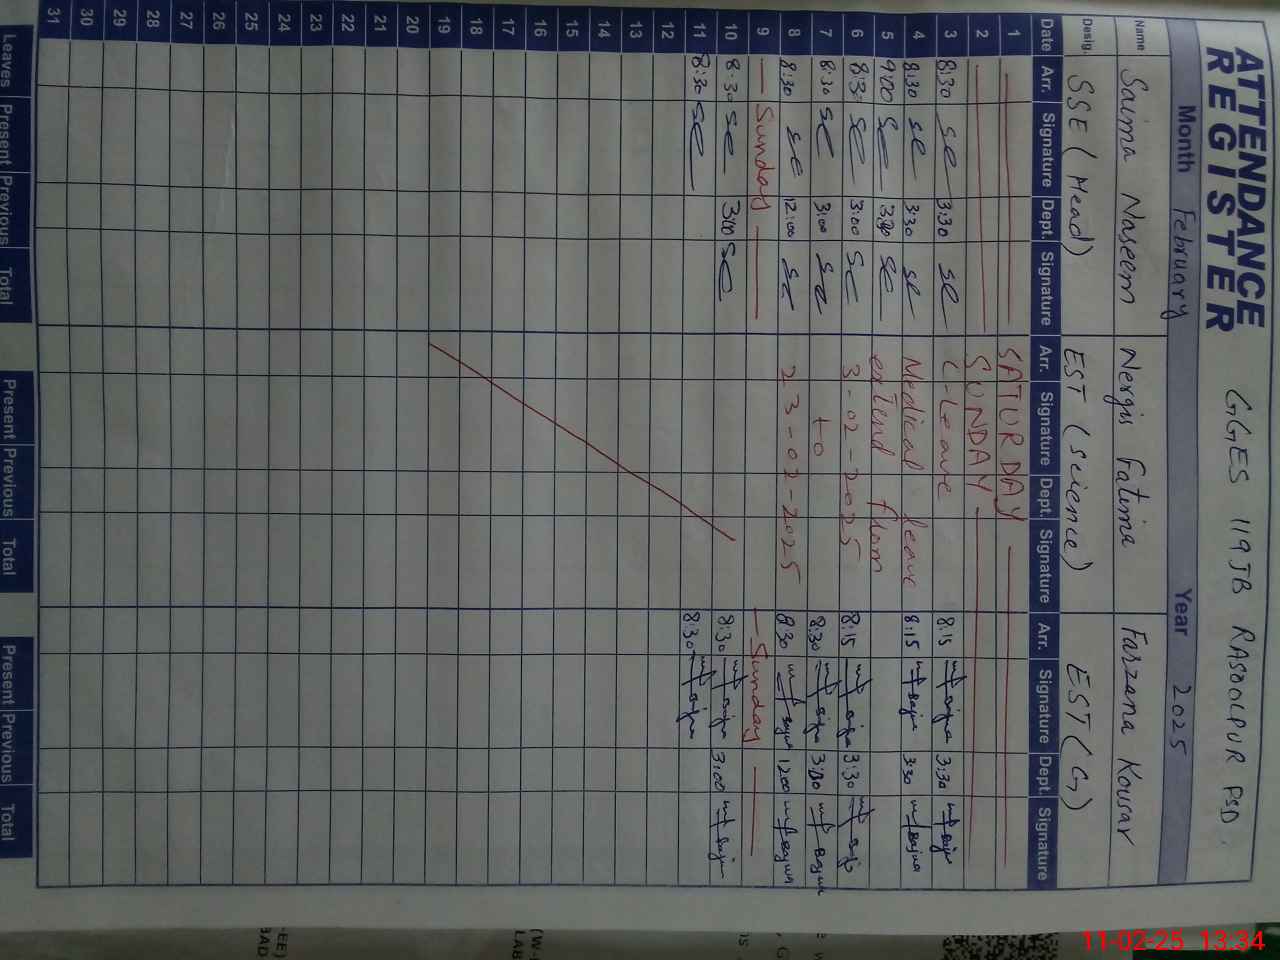 ATTENDANCE REGISTER
GGES 119JB RASOOLPUR PSD.
Month February Year 2025
Name Saima Naseem Nergis Fatima Farzana Kousar
Desig. SSE (Head) EST (Science) EST (G)
Date Arr. Signature Dept. Signature Arr. Signature Dept. Signature Arr. Signature Dept. Signature
1 SATURDAY
2 SUNDAY
3 8:30 3:30 C-Leave 8:15 3:30
4 8:30 3:30 Medical leave 8:15 3:30
5 9:00 extend
6 8:30 3:00 3-02-2025 8:15 3:30
7 8:30 3:00 to 8:30 3:00
8 8:30 12:00 23-02-2025 8:30 1200
9 Sunday Sunday
10 8:30 3:00 8:30 3:00
11 8:30 8:30
12
13
14
15
16
17
18
19
20
21
22
23
24
25
26
27
28
29
30
31
Leaves Present Previous Total Present Previous Total Present Previous Total
11-02-25 13:34